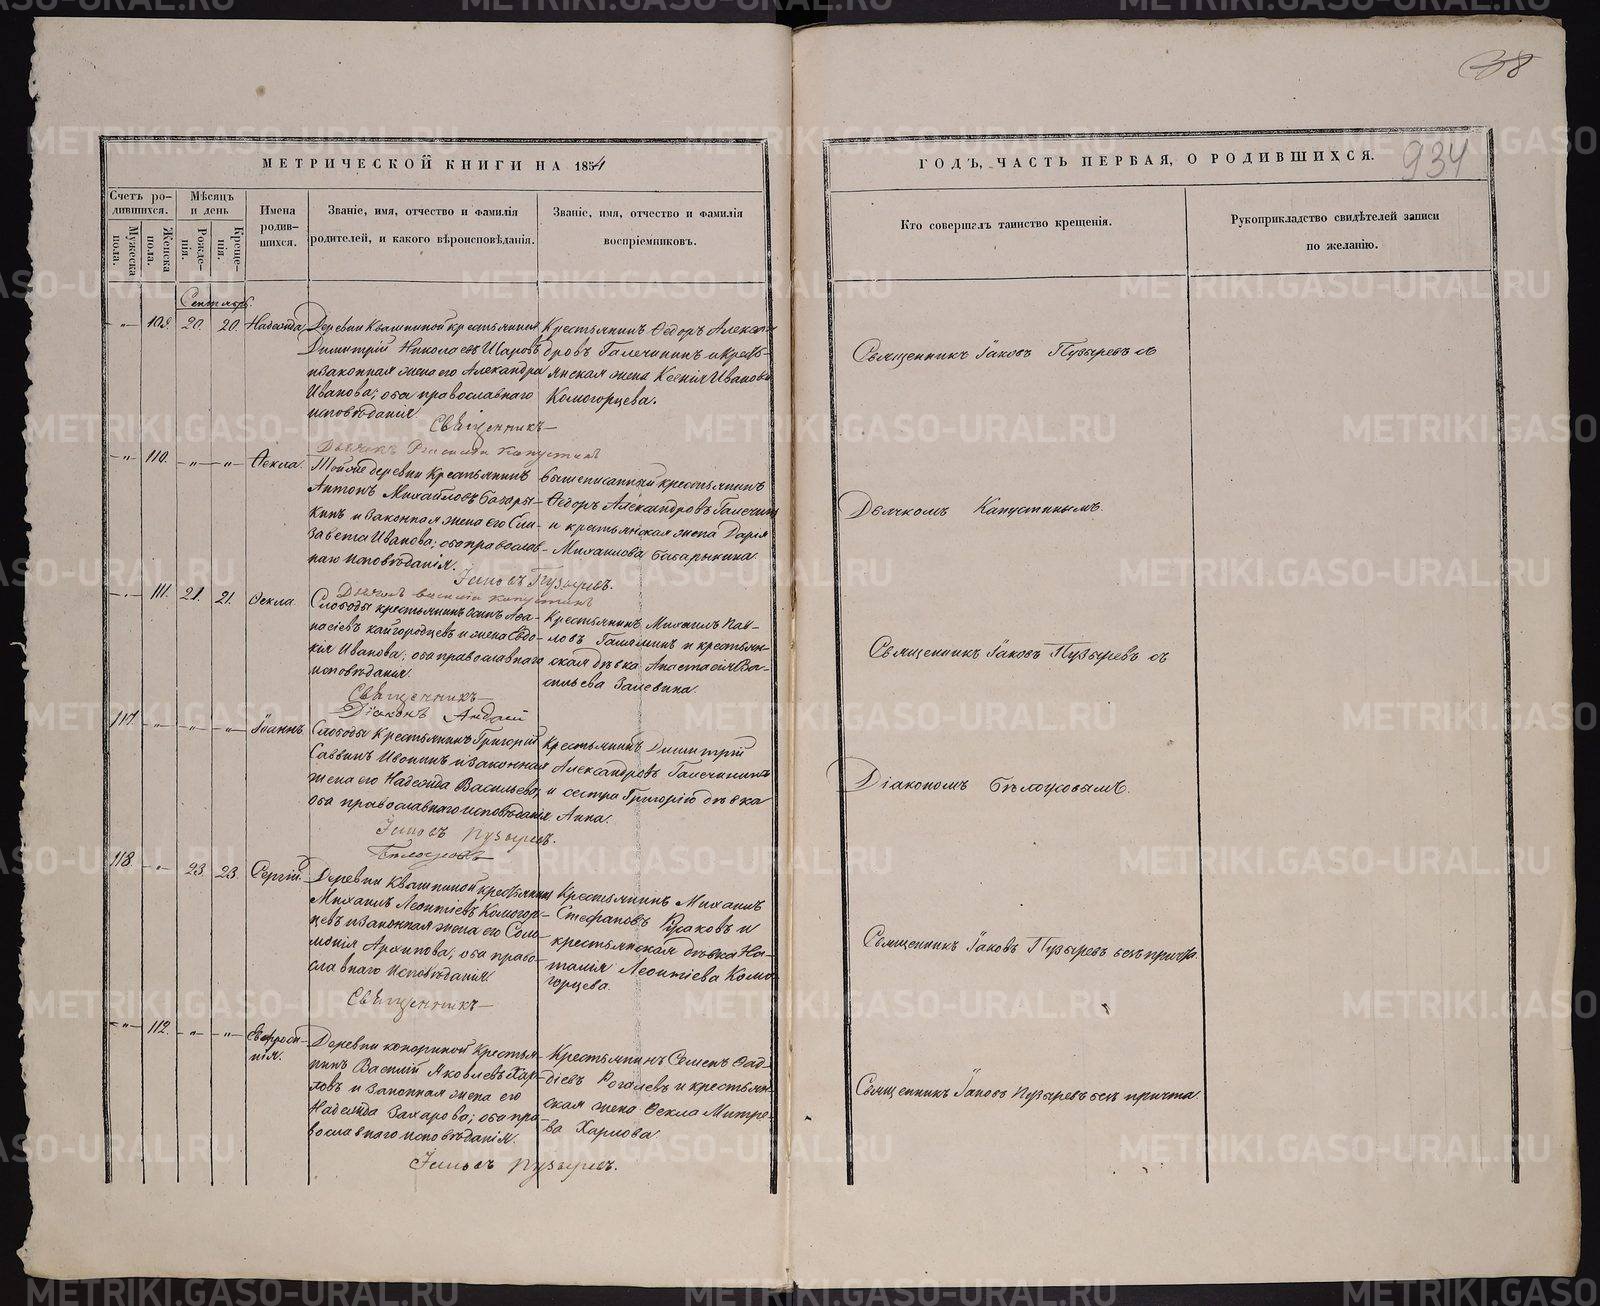 38
934
МЕТРИЧЕСКОЙ КНИГИ НА 1854
ГОДЪ, ЧАСТЬ ПЕРВАЯ, О РОДИВШИХСЯ.
Счетъ ро-
дившихся.
Мужеска
пола.
Женска
пола.
Мѣсяцъ
и день
Рожде-
нія.
Креще-
нія.
Имена
родив-
шихся.
Званіе, имя, отчество и фамилія
родителей, и какого вѣроисповѣданія.
Званіе, имя, отчество и фамилія
воспріемниковъ.
Кто совершалъ таинство крещенія.
Рукоприкладство свидѣтелей записи
по желанію.
Сентябрь.
109. 20. 20. Надежда
Деревни Квашниной крестьянинъ
Димитрій Николаевъ Шаровъ
и законная жена его Александра
Иванова; оба православнаго
исповѣданія
Крестьянинъ Ѳедоръ Алексан
дровъ Галечининъ и кресть-
янская жена Ксенія Иванова
Комогорцева.
Священникъ Іаковъ Пузыревъ съ
Священникъ
Дьячекъ Василій Капустинъ
110. Ѳекла.
Тойже деревни Крестьянинъ
Антонъ Михайловъ Батары-
кинъ и законная жена его Ели-
завета Иванова; оба православ-
наго исповѣданія.
вышеписанный крестьянинъ
Ѳедоръ Александровъ Галечинин
и крестьянская жена Дарія
Михаилова Батарыкина
Дьячкомъ Капустинымъ.
Іаковъ Пузыревъ.
Дьячекъ Василій Капустинъ
111. 21. 21. Ѳекла
Слободы крестьянинъ Осипъ Аѳа-
насіевъ Кайгородцевъ и жена Евдо-
кія Иванова; оба православнаго
исповѣданія.
Крестьянинъ Михаилъ Пав-
ловъ Галяминъ и крестьян-
ская дѣвка Анастасія Ва-
сильева Залевина.
Священникъ Іаковъ Пузыревъ съ
Священникъ
Діаконъ Андрей
117. Іоаннъ
Слободы Крестьянинъ Григорій
Саввинъ Ивонинъ и законная
жена его Надежда Васильева,
оба православнаго исповѣданія
Крестьянинъ Димитрій
Александровъ Галечининъ
и сестра Григорію дѣвка
Анна.
Діакономъ Бѣлоусовымъ.
Іаковъ Пузыревъ.
Бѣлоусовъ
118. 23. 23. Сергій.
Деревни Квашниной крестьянинъ
Михаилъ Леонтіевъ Комогор-
цевъ и законная жена его Соло-
монія Архипова; оба право-
славнаго исповѣданія.
Крестьянинъ Михаилъ
Стефановъ Русаковъ и
крестьянская дѣвка На-
талія Леонтіева Комо-
горцева.
Священникъ Іаковъ Пузыревъ безъ причта.
Священникъ
112. Евфроси-
нія.
Деревни Крестья-
нинъ Василій Яковлевъ Хар-
ловъ и законная жена его
Надежда Захарова; оба пра-
вославнаго исповѣданія.
Крестьянинъ Семенъ Ѳад-
діевъ Рогалевъ и крестьян-
ская жена Ѳекла Митре-
ва Харлова.
Священникъ Іаковъ Пузыревъ безъ причта.
Іаковъ Пузыревъ.
METRIKI.GASO-URAL.RU